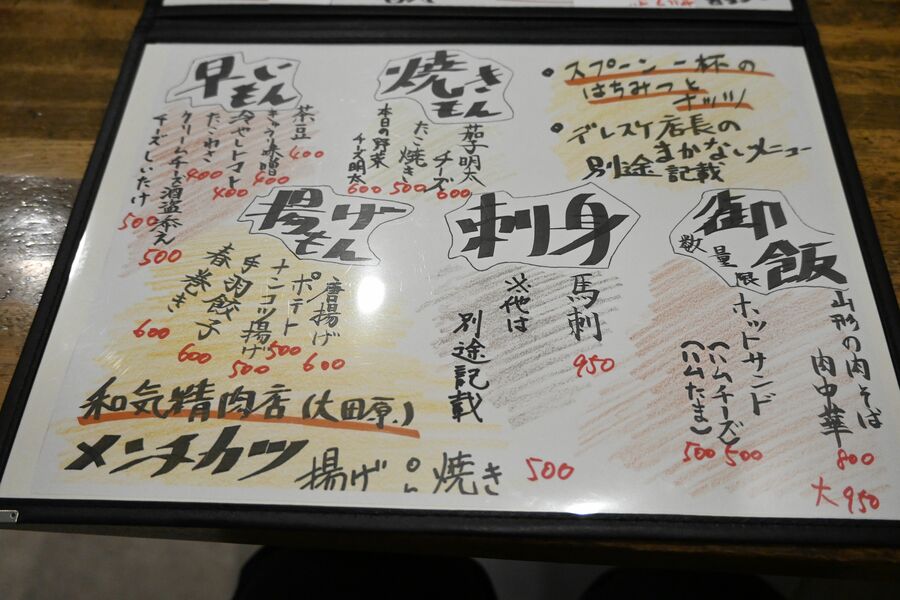 早いもん
茶豆 400
きゅうり味噌 400
冷やしトマト 400
たこわさ 400
クリームチーズ酒盗添え 500
チーズしいたけ 500
焼きもん
茄子明太チーズ 600
たこ焼き 500
本日の野菜チーズ明太 600
・スプーン一杯の
はちみつとナッツ
・デレスケ店長の
まかないメニュー
別途記載
揚げもん
唐揚げ 600
ポテト 500
ナンコツ揚げ 500
手羽餃子 600
春巻き 600
刺身
馬刺 950
※他は
別途記載
御飯
山形の肉そば
肉中華 800
大 950
数量限
ホットサンド
(ハムチーズ) 500
(ハムたま) 500
和気精肉店(大田原)
メンチカツ
揚げ or 焼き 500